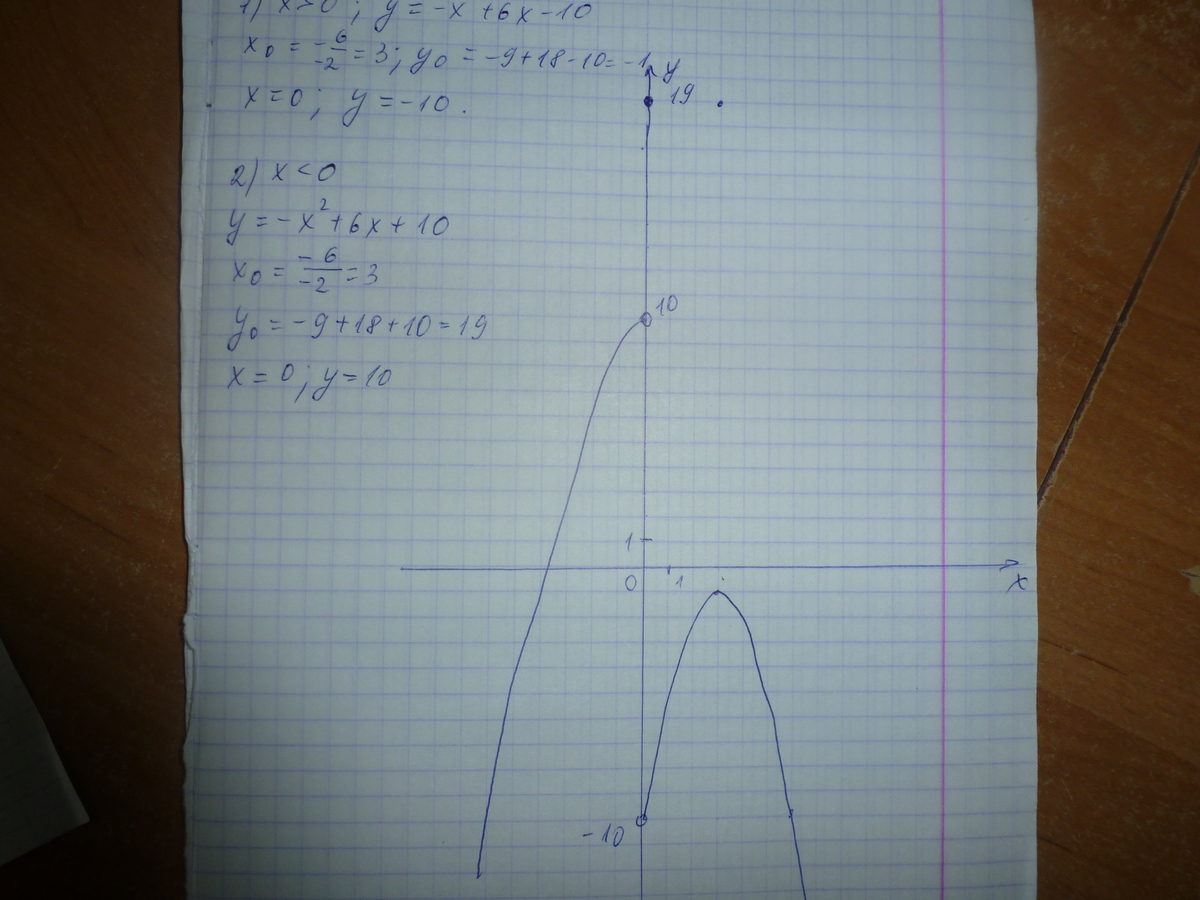 1) x>0; y=-x+6x-10
x₀ = -6/-2 = 3; y₀ = -9+18-10=-1
x=0; y=-10.
2) x<0
y=-x²+6x+10
x₀ = -6/-2 = 3
y₀ = -9+18+10=19
x=0; y=10
y
19
10
1
0 1
x
-10